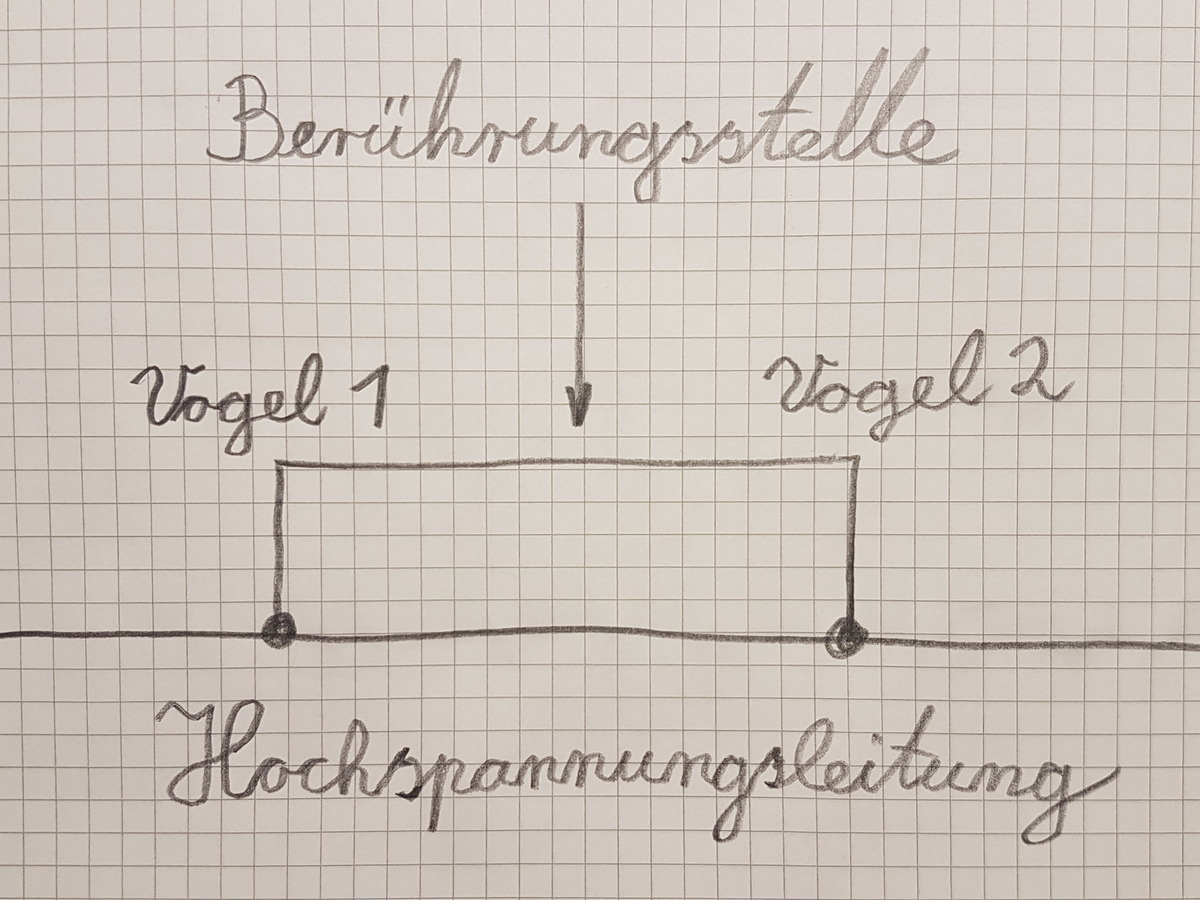 Berührungsstelle
Vogel 1
Vogel 2
Hochspannungsleitung